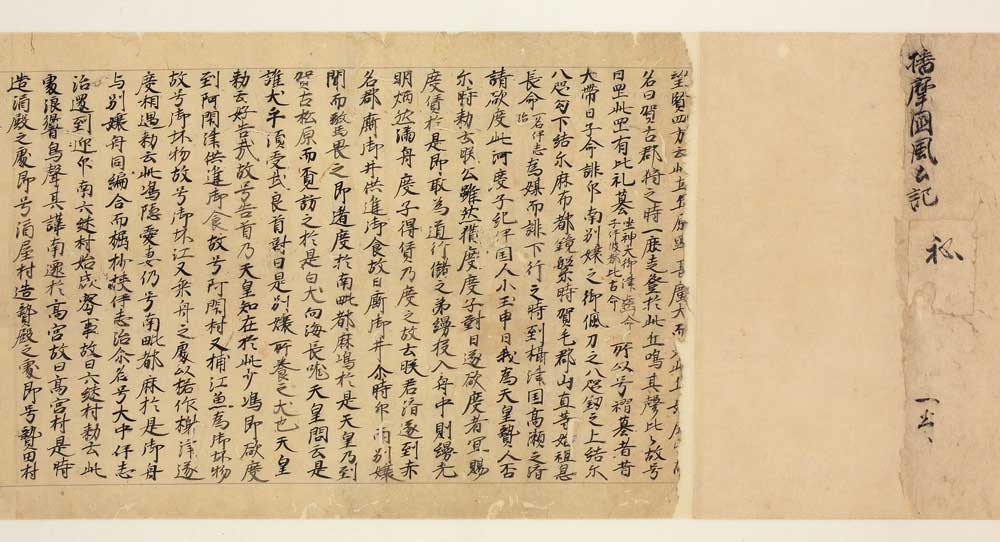 播摩國風土記
秘
望覽四方云此土丘原野甚廣大而
名曰賀古郡狩之時一鹿走登於此丘鳴其聲比々故号
日罡此罡有比礼墓坐神大御津齒命子伊波都比古命所以号褶墓者昔
大帶日子命誂印南別嬢之御佩刀之八咫釼之上結尓
八咫勾下結尓麻布都鏡繋時賀毛郡山直等始祖息
長命一名伊志治為媒而誂下行之時到攝津国高瀬之済
請欲度此河度子紀伊国人小玉申曰我為天皇贄人否
尓時勅云朕公雖然猶度度子對曰遂欲度者宜賜
度賃於是即取為道行儲之弟縵投入舟中則縵光
明炳然満舟度子得賃乃度之故云朕君済遂到赤
石郡廝御井供進御食故曰廝御井尒時印南別嬢
聞而驚畏之即遁度於南毗都麻嶋於是天皇乃到
賀古松原而覓訪之於是白犬向海長吠天皇問云是
誰犬乎須受武良首對曰是別嬢所養之犬也天皇
勅云好告哉故号告首乃天皇知在於此少嶋即欲度
到阿閇津供進御食故号阿閇村又捕江魚為御坏物
故号御坏江又乗舟之處以楉作榭津遂
度相遇勅云此嶋隠愛妻仍号南毗都麻於是御舟
与別嬢舟同編合而榜杪挾伊志治尒名号大中伊志
治還到印南六継村始成密事故曰六継村勅云此
處浪響鳥聲甚譁南遷於高宮故曰高宮村是時
造酒殿之處即号酒屋村造贄殿之處即号贄田村